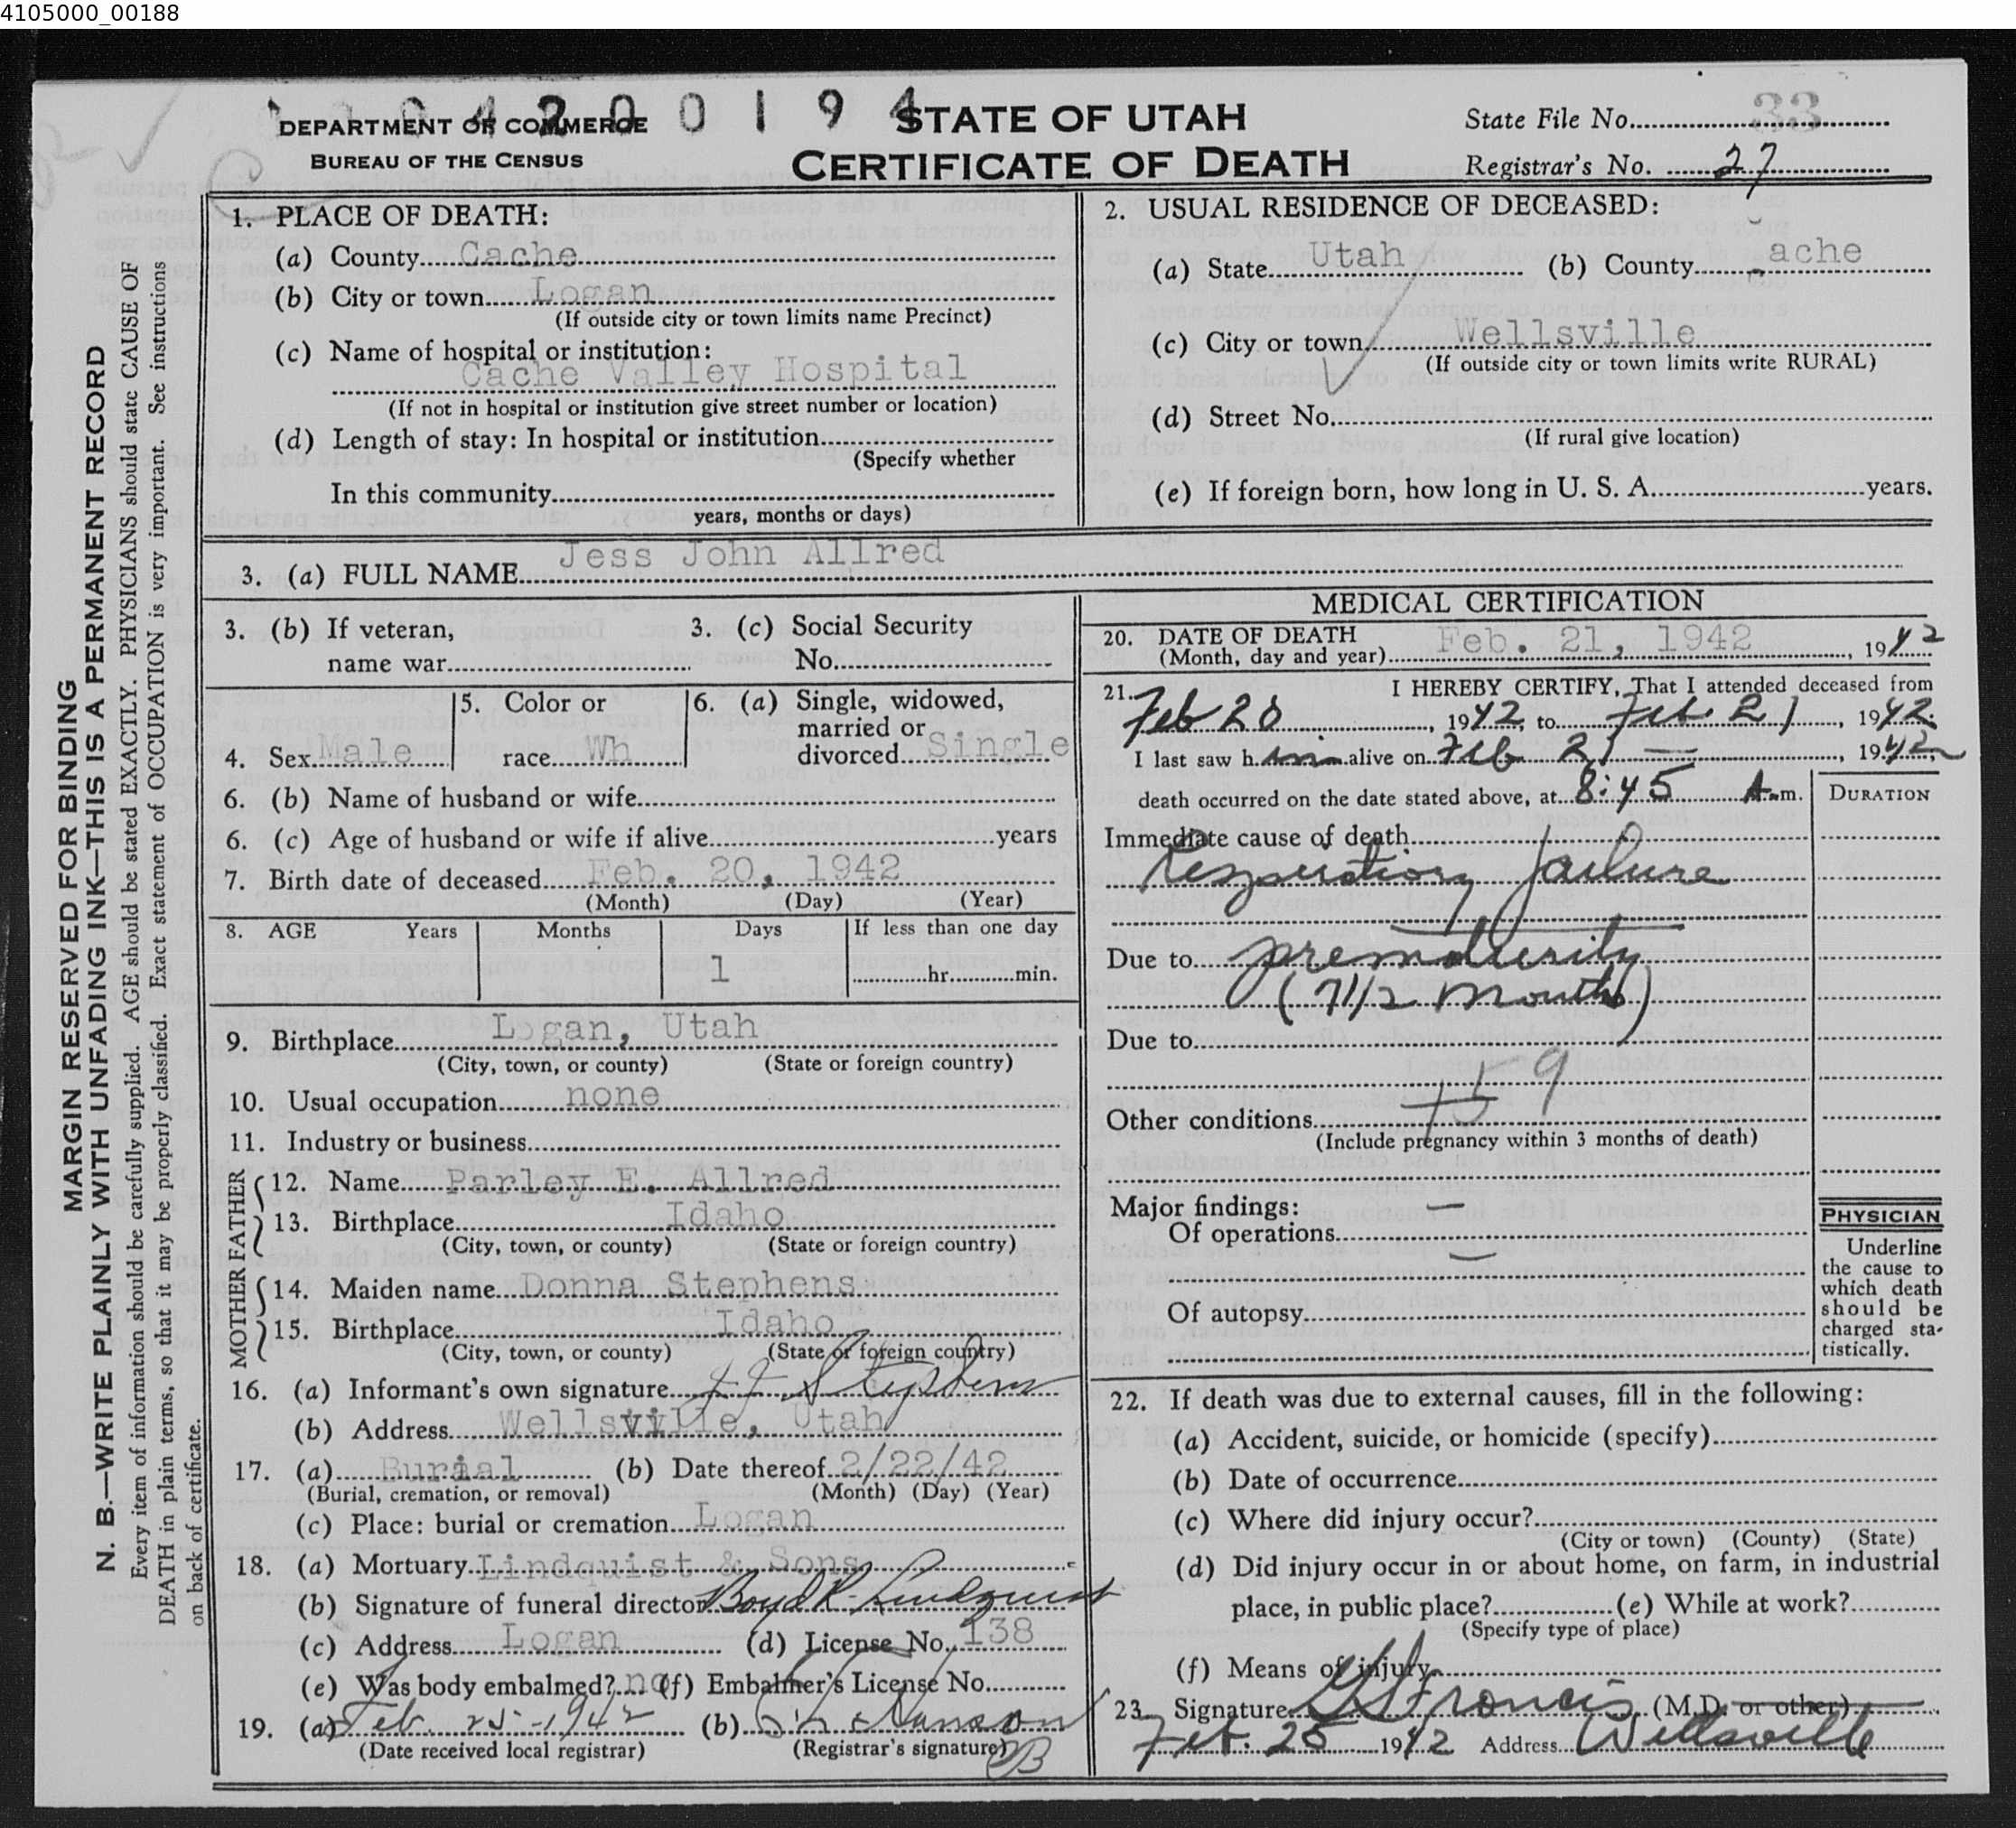 4105000_00188
DEPARTMENT OF COMMERCE
BUREAU OF THE CENSUS
4 2 0 0 1 9 4
STATE OF UTAH
CERTIFICATE OF DEATH
State File No. 33
Registrar's No. 27
MARGIN RESERVED FOR BINDING
N. B.—WRITE PLAINLY WITH UNFADING INK—THIS IS A PERMANENT RECORD
Every item of information should be carefully supplied. AGE should be stated EXACTLY. PHYSICIANS should state CAUSE OF
DEATH in plain terms, so that it may be properly classified. Exact statement of OCCUPATION is very important. See instructions
on back of certificate.
1. PLACE OF DEATH:
(a) County Cache
(b) City or town Logan
(If outside city or town limits name Precinct)
(c) Name of hospital or institution:
Cache Valley Hospital
(If not in hospital or institution give street number or location)
(d) Length of stay: In hospital or institution
(Specify whether
In this community
years, months or days)
2. USUAL RESIDENCE OF DECEASED:
(a) State Utah (b) County ache
(c) City or town Wellsville
(If outside city or town limits write RURAL)
(d) Street No.
(If rural give location)
(e) If foreign born, how long in U. S. A. years.
3. (a) FULL NAME Jess John Allred
3. (b) If veteran,
name war
3. (c) Social Security
No.
4. Sex Male
5. Color or
race Wh
6. (a) Single, widowed,
married or
divorced Single
6. (b) Name of husband or wife
6. (c) Age of husband or wife if alive years
7. Birth date of deceased Feb. 20, 1942
(Month) (Day) (Year)
8. AGE Years Months Days If less than one day
1 hr. min.
9. Birthplace Logan, Utah
(City, town, or county) (State or foreign country)
10. Usual occupation none
11. Industry or business
FATHER
12. Name Parley E. Allred
13. Birthplace Idaho
(City, town, or county) (State or foreign country)
MOTHER
14. Maiden name Donna Stephens
15. Birthplace Idaho
(City, town, or county) (State or foreign country)
16. (a) Informant's own signature Stephens
(b) Address Wellsville, Utah
17. (a) Burial (b) Date thereof 2/22/42
(Burial, cremation, or removal) (Month) (Day) (Year)
(c) Place: burial or cremation Logan
18. (a) Mortuary Lindquist & Sons
(b) Signature of funeral director Boyd R. Lindquist
(c) Address Logan (d) License No. 138
(e) Was body embalmed? no (f) Embalmer's License No.
19. (a) Feb. 25-1942 (b) Hanson
(Date received local registrar) (Registrar's signature)
B
MEDICAL CERTIFICATION
20. DATE OF DEATH
(Month, day and year) Feb. 21, 1942, 1942
21. I HEREBY CERTIFY, That I attended deceased from
Feb 20, 1942, to Feb 21, 1942.
I last saw him alive on Feb 21, 1942,
death occurred on the date stated above, at 8:45 A. m.
DURATION
Immediate cause of death
Respiratory failure
Due to prematurity
(7 1/2 months)
Due to
159
Other conditions
(Include pregnancy within 3 months of death)
Major findings:
Of operations —
—
Of autopsy
PHYSICIAN
Underline
the cause to
which death
should be
charged sta-
tistically.
22. If death was due to external causes, fill in the following:
(a) Accident, suicide, or homicide (specify)
(b) Date of occurrence
(c) Where did injury occur?
(City or town) (County) (State)
(d) Did injury occur in or about home, on farm, in industrial
place, in public place? (e) While at work?
(Specify type of place)
(f) Means of injury
23. Signature G L Francis (M.D. or other)
Feb. 25 1942 Address Wellsville